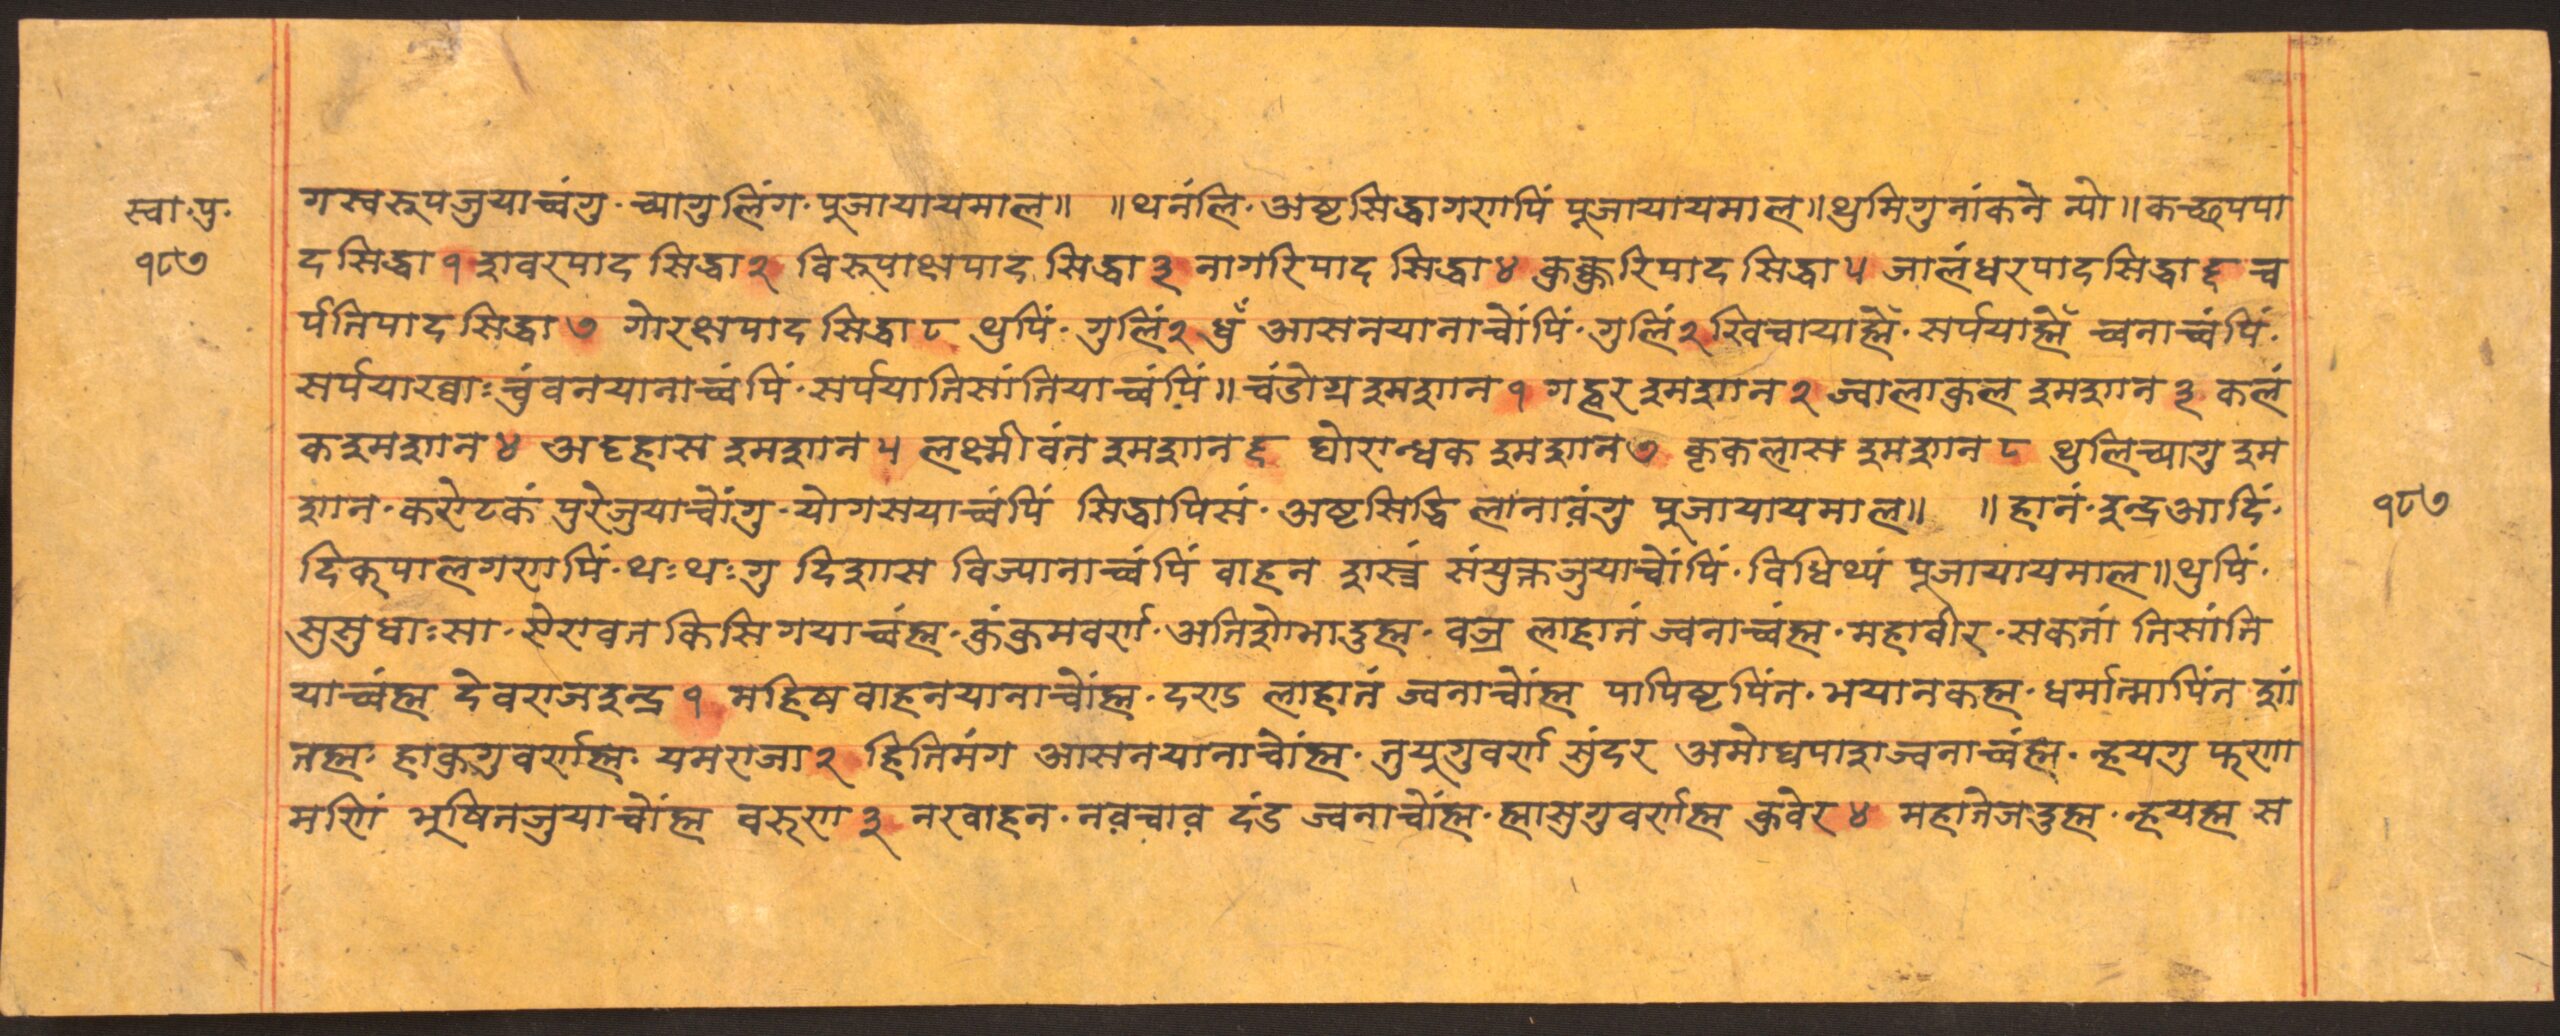 स्वा·पु· गस्वरूपजुयाच्वंगु·च्यागुलिंग·पुजायायमाल॥ ॥थनंलि·अष्टसिद्धागणपिं पूजायायमाल॥थुमिगुनांकने न्यो॥कच्छपपा
१८७ दसिद्धा१शवरपादसिद्धा२ विरूपाक्षपादसिद्धा३ नागरिपादसिद्धा४ कुक्कुरिपादसिद्धा५ जालंधरपादसिद्धा६च
र्पतिपादसिद्धा७ गोरक्षपादसिद्धा८ थुपिं·गुलिं२ धुँ आसनयानाचोंपिं·गुलिं२खिचायाह्ने·सर्पयाह्ने च्वनाच्वंपिं·
सर्पयाख्वाः चुंवनयानाच्वंपिं·सर्पयातिसांतियाच्वंपिं॥चंडोग्रश्मशान१गह्वरश्मशान२ज्वालाकुल श्मशान३कलं
कश्मशान४ अट्टहास श्मशान५लक्ष्मीवंन श्मशान६ घोरान्धक श्मशान७ कृकलास श्मशान८ थुलिच्यागु श्म
शान·करोटकं पुरेजुयाचोंगु·योगसयाच्वंपिं सिद्धापिसं·अष्टसिद्धि लानावंगु पुजायायमाल॥ ॥हानं·इन्द्रआदिं· १८७
दिक्पालगणपिं·थःथःगु दिशास विज्यानाच्वंपिं वाहन शस्त्रं संयुक्तजुयाचोंपिं·विधिथ्यं पूजायायमाल॥थुपिं·
सुसुधाःसा·ऐरावत किसि गयाच्वंह्म·कुंकुमवर्ण·अतिशोभादुह्म·वज्र लाहातं ज्वनाच्वंह्म·महावीर·सकतां तिसांति
याच्वंह्म देवराजइन्द्र१ महिषवाहनयानाचोंह्म·दण्ड लाहातं ज्वनाचोंह्म पापिष्टपिंत·भयानकह्म·धर्मात्मापिंत शां
तह्म·हाकुगुवर्णह्म·यमराजा२ हितिमंग आसनयानाचोंह्म·तुयुगुवर्ण सुंदर अमोघपाशज्वनाच्वंह्म·न्हयगु फणा
मणिं भूषितजुयाचोंह्म वरूण३ नरवाहन·नवन्वाव दंड ज्वनाचोंह्म·ह्मासुगुवर्णह्म कुवेर४ महातेजदुह्म·न्हयह्म स